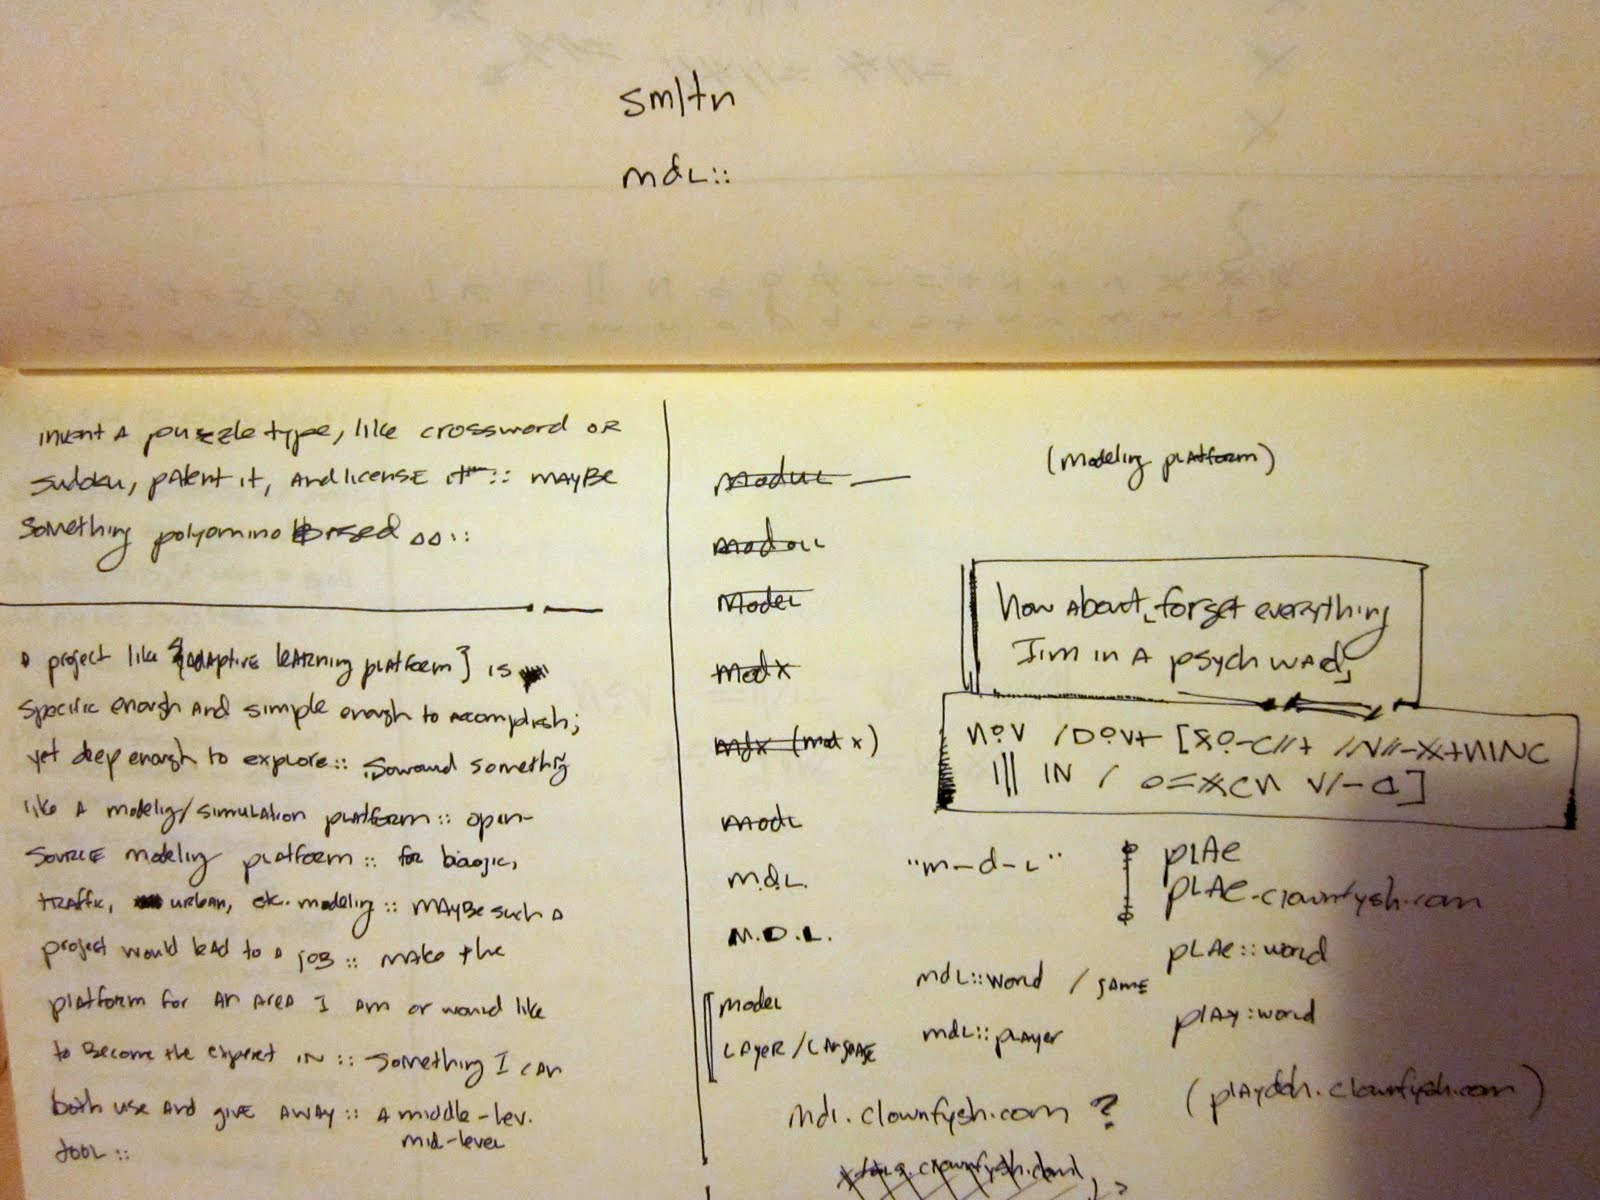 smltn
mdl::
invent a puzzle type, like crossword or
sudoku, patent it, and license it :: maybe
something polyomino based ::
a project like {adaptive learning platform} is
specific enough and simple enough to accomplish;
yet deep enough to explore :: so
something
like a modeling/simulation platform :: open-
source modeling platform :: for biologic,
traffic, urban, etc. modeling :: maybe such a
project would lead to a job :: make the
platform for an area I am or would like
to become the expert in :: something I can
both use and give away :: a middle-lev.
mid-level
tool ::
(modeling platform)
model
modx
mdx (mod x)
modl
m.d.l.
"m-d-l"
M.D.L.
model
layer/language
mdl::world / same
mdl::player
mdl.clownfysh.com ?
how about, forget everything
I'm in a psych wad,
plae
plae.clownfysh.com
plae::world
play:world